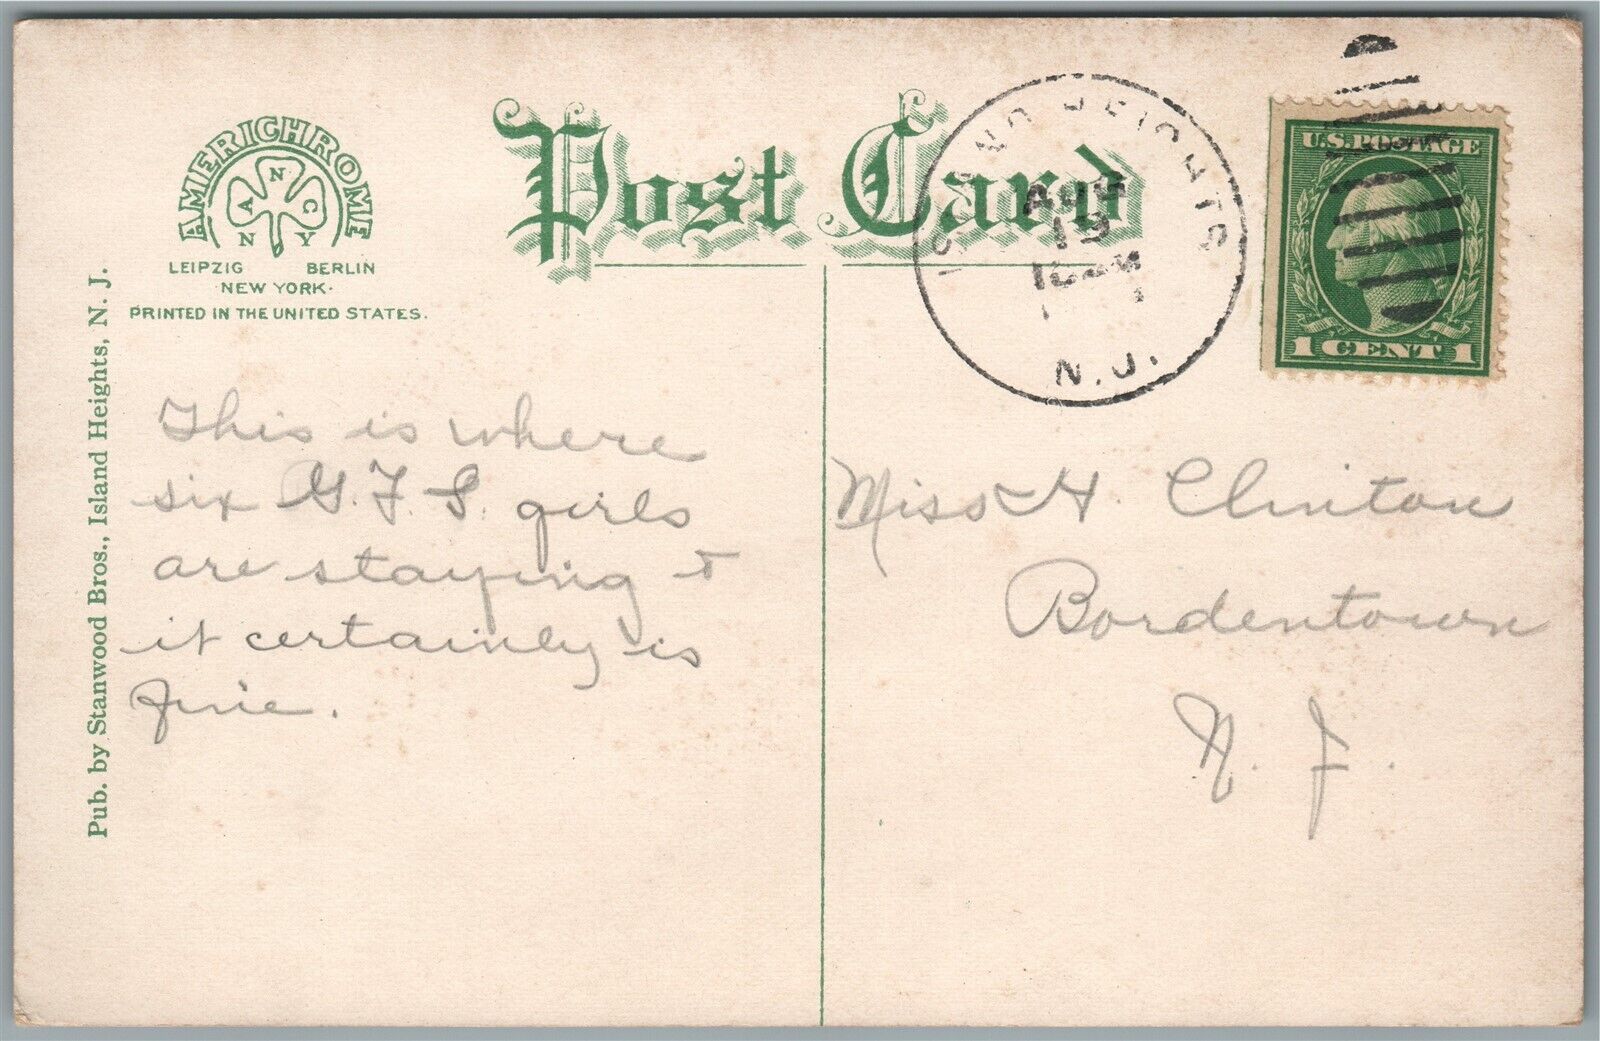 AMERICHROME
A N C
N Y
LEIPZIG BERLIN
·NEW YORK·
PRINTED IN THE UNITED STATES.
Post Card
ISLAND HEIGHTS
AUG
19
N.J.
U.S. POSTAGE
1 CENT 1
Pub. by Stanwood Bros., Island Heights, N. J.
This is where
six G. F. S. girls
are staying &
it certainly is
fine.
Miss H. Clinton
Bordentown
N. J.